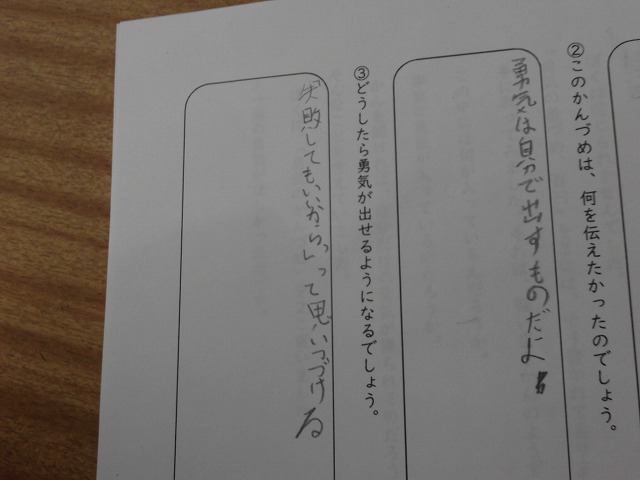 ②このかんづめは、何を伝えたかったのでしょう。
勇気は自分で出すものだよ
③どうしたら勇気が出せるようになるでしょう。
失敗してもいいからって思いつづける